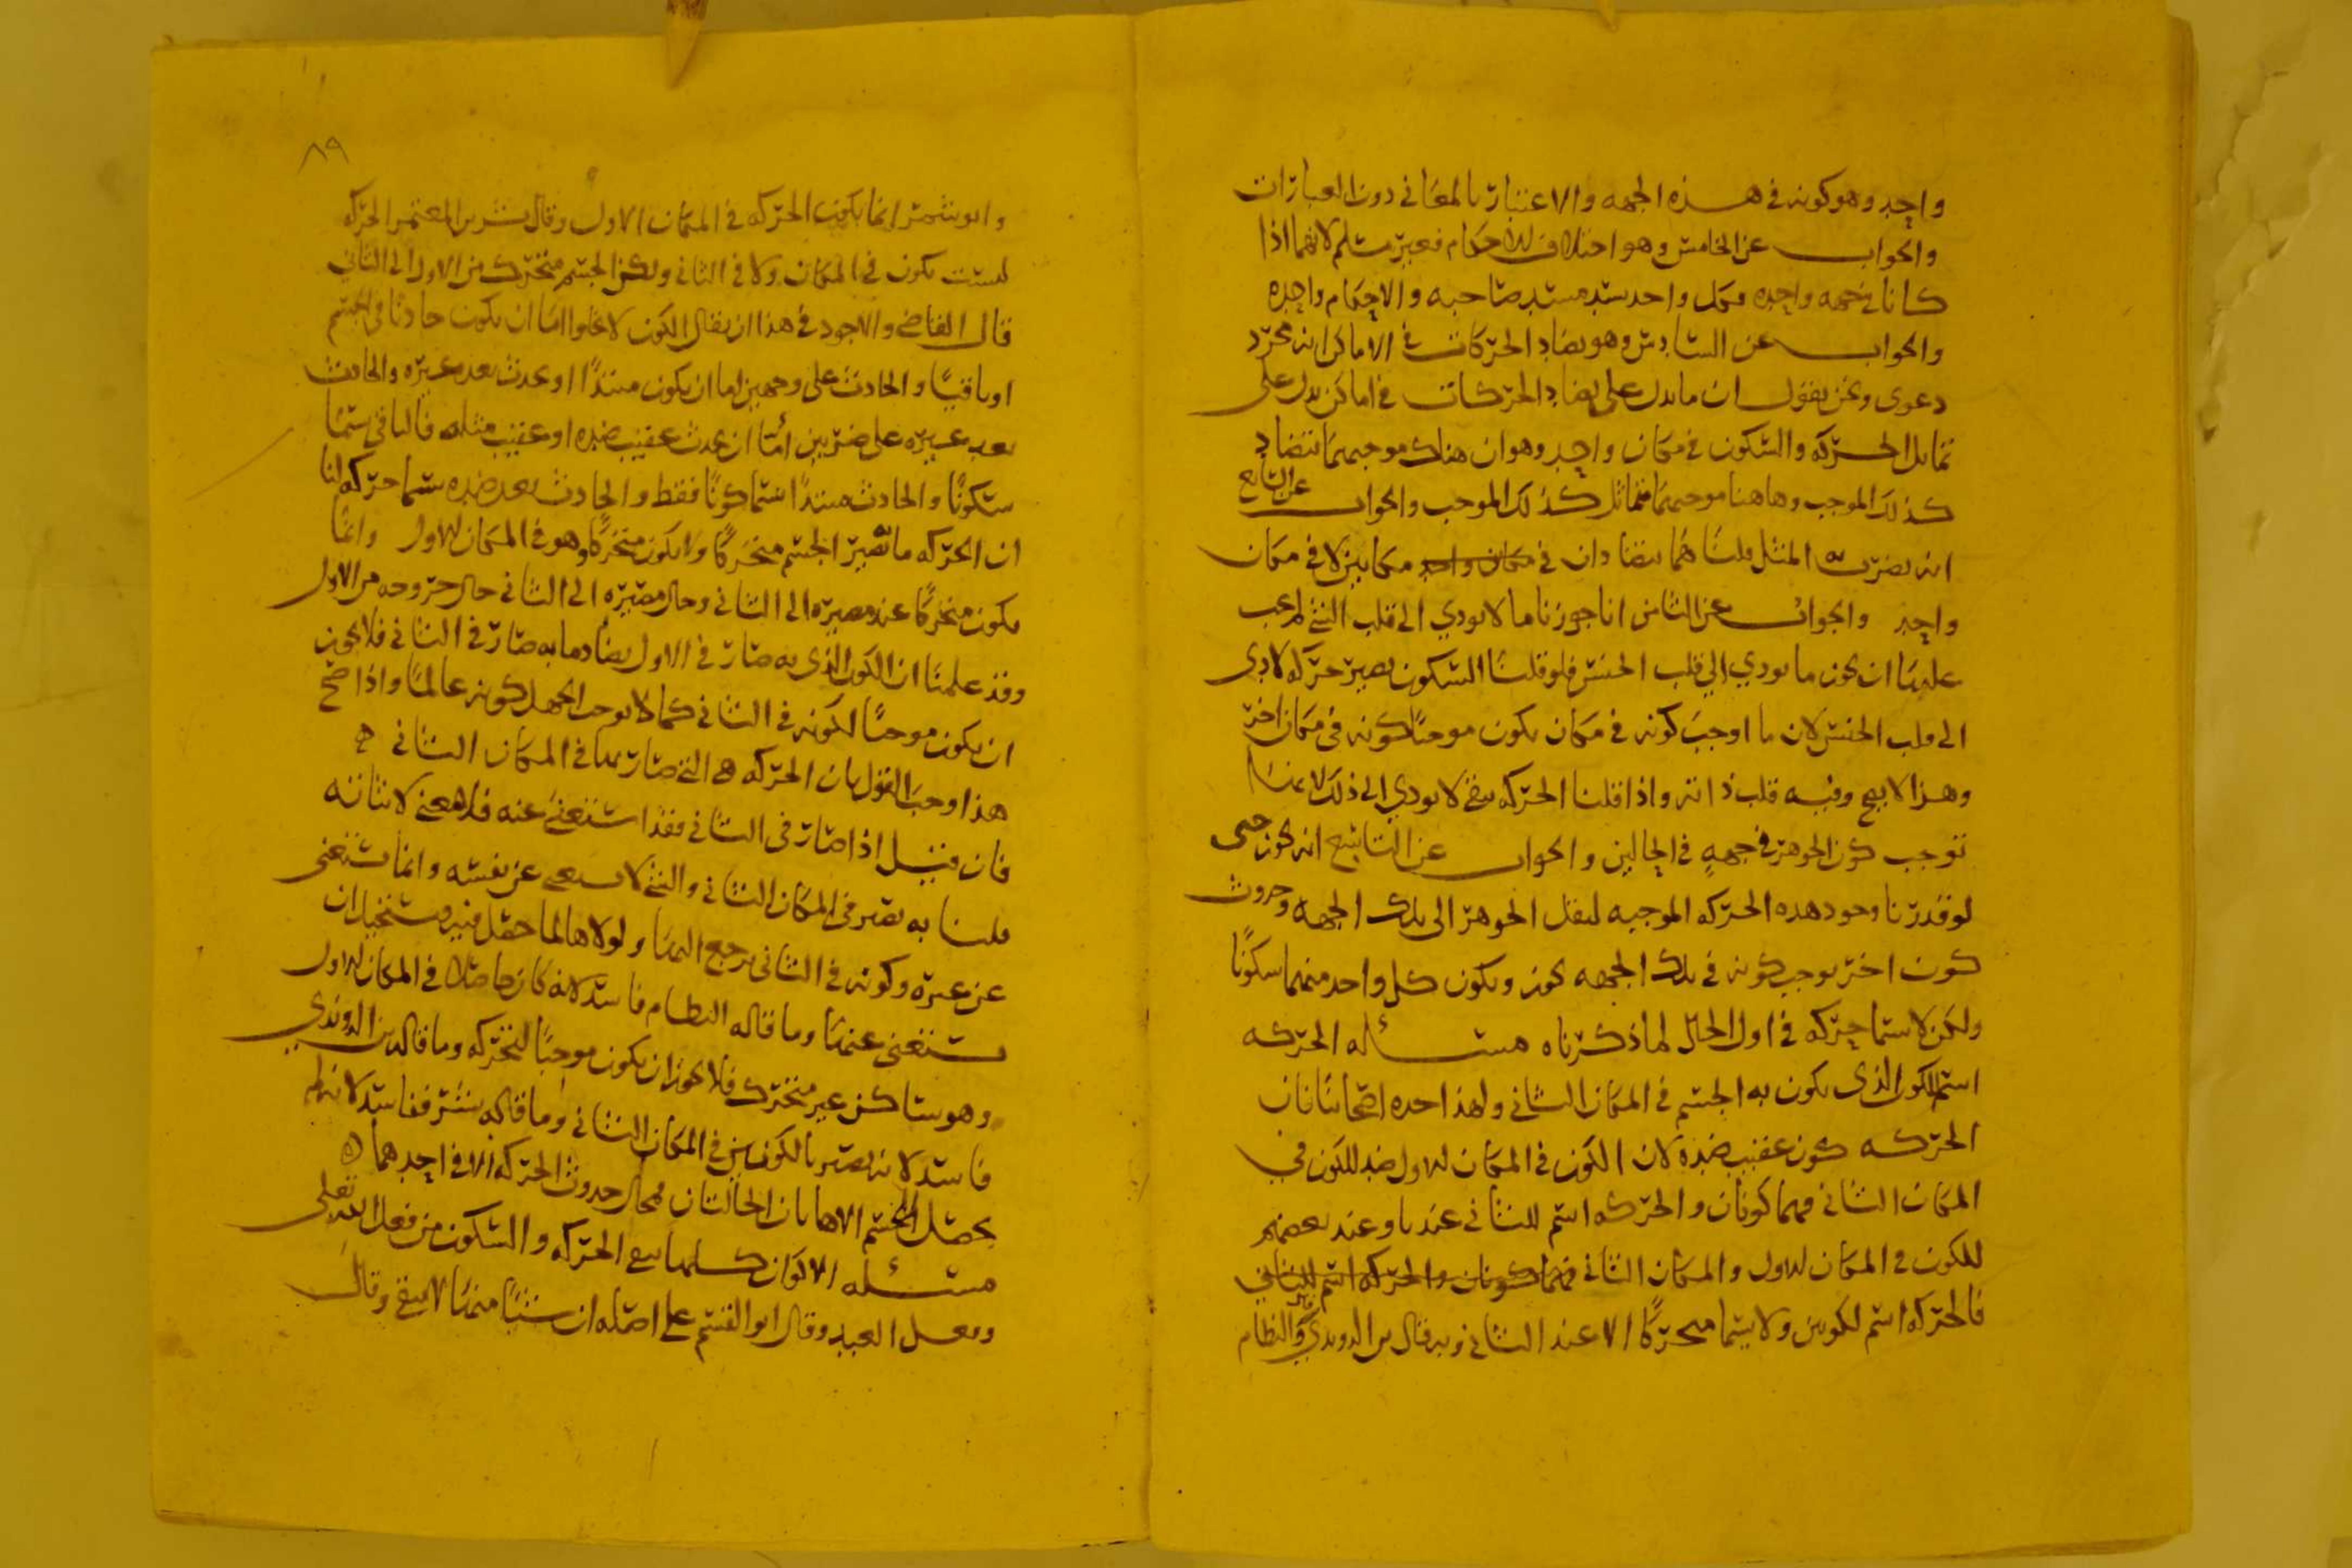 واحد وهو كونه في هذه الجهه والاعتبار بالمعاني دون العبارات
والجواب عن الخامس وهو اختلاف الاحكام فغير مسلم لانهما اذا
كانا في جهه واحده فكل واحد يسد مسد صاحبه والاحكام واحده
والجواب عن السادس وهو تضاد الحركات في الاماكن انه مجرد
دعوى ونحن نقول ان ما يدل على تضاد الحركات في اماكن يدل على
تماثل الحركه والسكون في مكان واحد وهو ان هناك موجبهما يتضاد
كذلك الموجب وهاهنا موجبهما متماثل كذلك الموجب والجواب عن السابع
انه يضرب المثل قلنا هما يتضادان في مكان واحد مكانين لا في مكان
واحد والجواب عن الثامن انا جوزنا ما لا يودي الى قلب الشي لم يجب
علينا ان نجوز ما يودي الى قلب الجنس فلو قلنا السكون يصير حركه لادى
الى قلب الجنس لان ما اوجب كونه في مكان يكون موجبا كونه في مكان اخر
وهذا لا يصح وفيه قلب ذاته واذا قلنا الحركه تبقى لا يودي الى ذلك لانها
توجب كون الجوهر في جهه في الحالين والجواب عن التاسع انه يجوز حتى
لو قدرنا وجود هذه الحركه الموجبه لنقل الجوهر الى تلك الجهه وحدوث
كون اخر يوجب كونه في تلك الجهه يجوز ويكون كل واحد منهما سكونا
ولكن لا يسما حركه في اول الحال لما ذكرناه مسئله الحركه
اسم للكون الذي يكون به الجسم في المكان الثاني ولهذا حده اصحابنا بان
الحركه كون عقيب ضده لان الكون في المكان الاول ضد للكون في
المكان الثاني فهما كونان والحركه اسم للثاني عندنا وعند بعضهم
للكون في المكان الاول والمكان الثاني فهما كونان والحركه اسم للثاني
فالحركه اسم لكونين ولا يسما متحركا الا عند الثاني وبه قال بن الروندي والنظام
٨٩
وابو شمر انما يكون الحركه في المكان الاول وقال بشر بن المعتمر الحركه
ليست تكون في المكان ولا في الثاني ولكن الجسم متحرك من الاول الى الثاني
قال القاضي والاجود في هذا ان يقال الكون لا يخلوا اما ان يكون حادثا في الجسم
او باقيا والحادث على وجهين اما ان يكون مبتدأ او يحدث بعد غيره والحادث
بعد غيره على ضربين اما ان يحدث عقيب ضده او عقيب مثله فالباقي يسما
سكونا والحادث مبتدا يسما كونا فقط والحادث بعد ضده يسما حركه لنا
ان الحركه ما تصير الجسم متحركا ولا يكون متحركا وهو في المكان الاول وانما
يكون متحركا عند مصيره الى الثاني وحال مصيره الى الثاني حال خروجه من الاول
وقد علمنا ان الكون الذي به صار في الاول يضاد ما به صار في الثاني فلا يجوز
ان يكون موجبا لكونه في الثاني كما لا يوجب الجهل كونه عالما واذا صح
هذا وجب القول بان الحركه هي التي صار بها في المكان الثاني
فان قيل اذا صار في الثاني فقد استغنى عنه فلا معنى لاثباته
قلنا به يصير في المكان الثاني والشي لا يستغني عن نفسه وانما يستغنى
عن غيره وكونه في الثاني يرجع اليها ولولاها لما حصل فيه فيستحيل ان
يستغنى عنها وما قاله النظام فاسد لانه كان حاصلا في المكان الاول
وهو ساكن غير متحرك فلا يجوز ان يكون موجبا للتحركه وما قاله بن الروندي
فاسد لانه يصير بالكونين في المكان الثاني وما قاله بشر ففاسد لانه لم
يحصل للجسم الا هاتان الحالتان فمحال حدوث الحركه الا في احدهما
مسئله الاكوان كلها تبقى الحركه والسكون من فعل الله تعلى
وفعل العبد وقال ابو القسم على اصله ان شيئا منها لا يبقى وقال